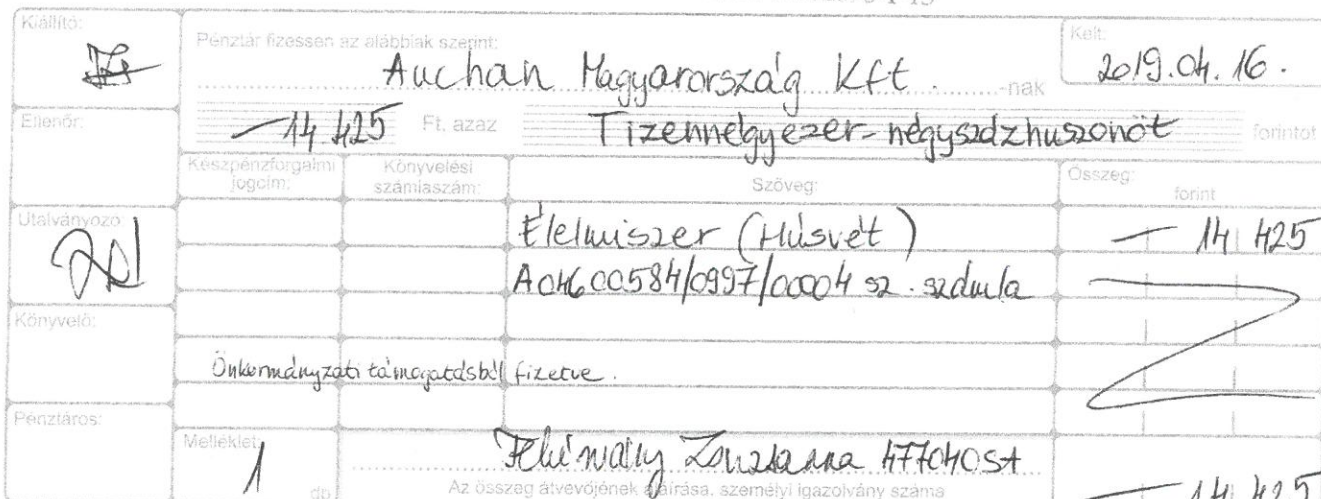 Kiállító:
Pénztár fizessen az alábbiak szerint:
Kelt:
Auchan Magyarország Kft. -nak
2019.04.16.
Ellenőr:
—14 425 Ft. azaz Tizennégyezer-négyszázhuszonöt forintot
Készpénzforgalmi jogcím:
Könyvelési számlaszám:
Szöveg:
Összeg:
forint
Utalványozó:
Élelmiszer (Húsvét) — 14 425
A04600584/0997/00004 sz. számla
Könyvelő:
Önkormányzati támogatásból fizetve.
Pénztáros:
Melléklet:
1 db
Zsuzsanna 477040SA
Az összeg átvevőjének aláírása, személyi igazolvány száma
— 14 425